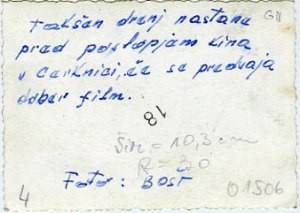 GII
Takšen drenj nastane
pred poslopjem kina
v Cerknici, če se predvaja
dober film.
18
Šir = 10,3 cm
R = 30
Foto: BOST
4
01506